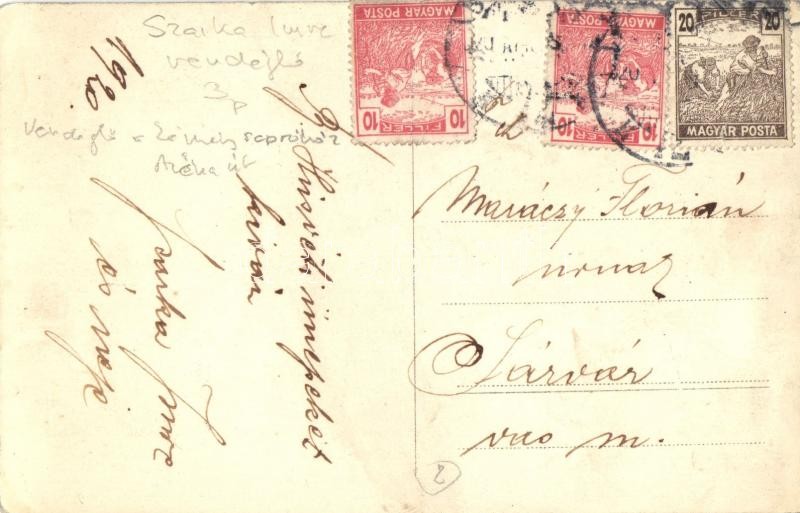 Szarka Imre
vendéglő
3p
vendéglő a
1920.
B. Húsvéti ünnepeket
kiván
Szarka Imre
és neje
MAGYAR POSTA
10 FILLÉR 10
MAGYAR POSTA
10 FILLÉR 10
20 FILLÉR 20
MAGYAR POSTA
Maráczy Florián
urnak
Sárvár
vas m.
2